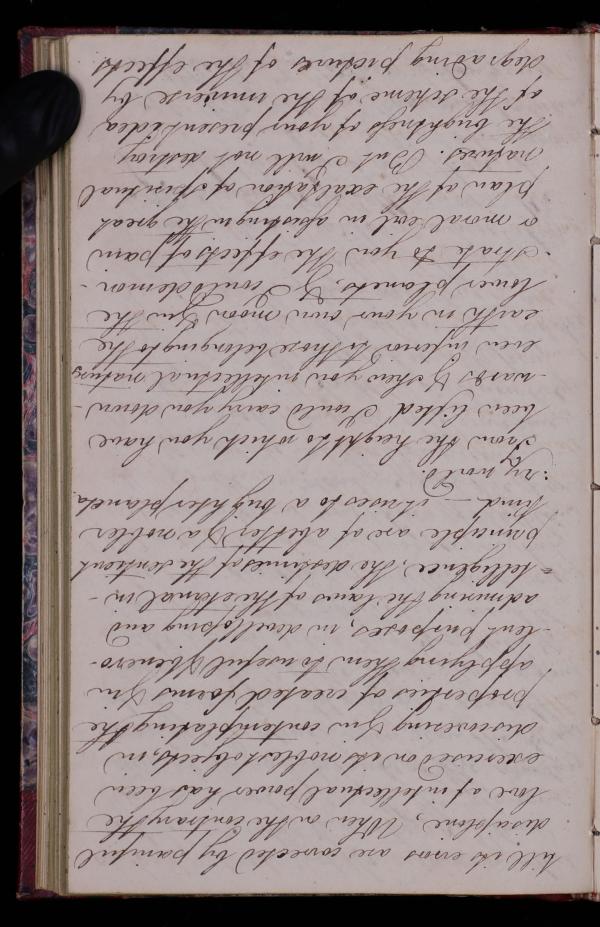 till its errors are corrected by painful
discipline, When on the contrary the
love of intellectual power has been
exercised on its noblest objects, in
discovering & in contemplating the
properties of created forms & in
applying them to useful & benevo-
-lent purposes, in developing and
admiring the laws of the eternal in-
=telligence, the destinies of the sentient
principle are of a better & a nobler
kind — it rises to a brighter planeta
:ry world.
From the height to which you have
been lifted I could carry you down-
-wards & shew you intellectual natures
even inferior to those belonging to the
earth in your own moon & in the
lower planets, & I could demon-
-strate to you the effects of pain
or moral evil in assisting in the great
plan of the exaltation of spiritual
natures. But I will not destroy
the brightness of your present idea
of the scheme of the universe by
degrading pictures of the effects